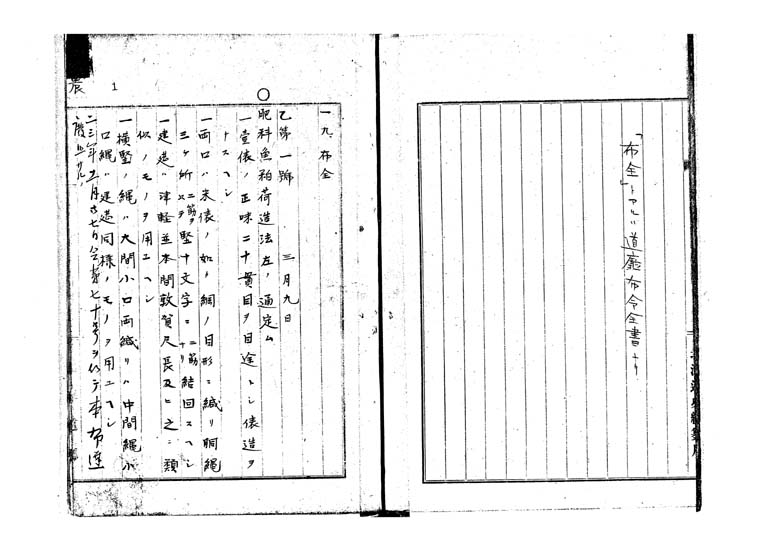 「布全」トアルハ道廳布令全書ナリ
農
1
一九、布全
乙第一號　三月九日
○肥料魚粕荷造法左ノ通定ム
一壹俵ノ正味二十貫目ヲ目途トシ俵造ヲ
トスヘシ
一両口ハ米俵ノ如ク網ノ目形ニ織リ胴縄
三ケ所二筋ヲ竪十文字ニ二筋ナリ結回スヘシ
一建莚ハ津軽並本間敦賀尺長及ヒ之ニ類
似ノモノヲ用ユヘシ
一横竪ノ縄ハ大間小口両織リハ中間縄小
口縄ハ建莚同様ノモノヲ用ユヘシ
二三年五月廿七日令第七十号ヲ以テ本布達
廃止サル